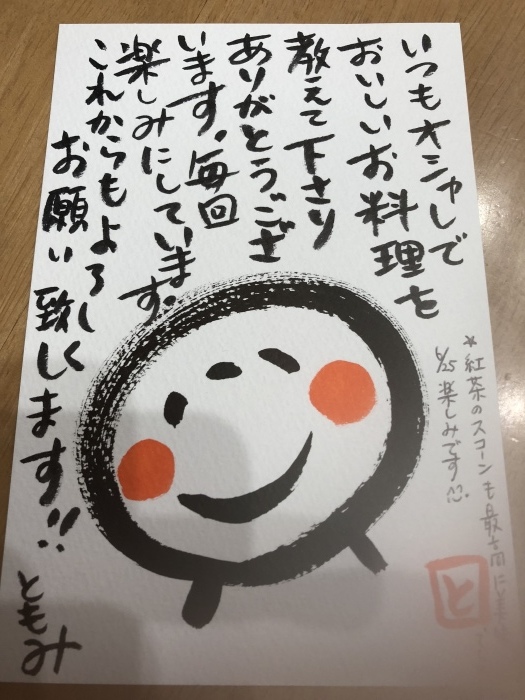 いつもオシャレで
おいしいお料理を
教えて下さり
ありがとうござ
います。毎回
楽しみにしています。
これからもよろしく
お願い致します!!
ともみ
*紅茶のスコーンも最高に
6/25 楽しみです
と